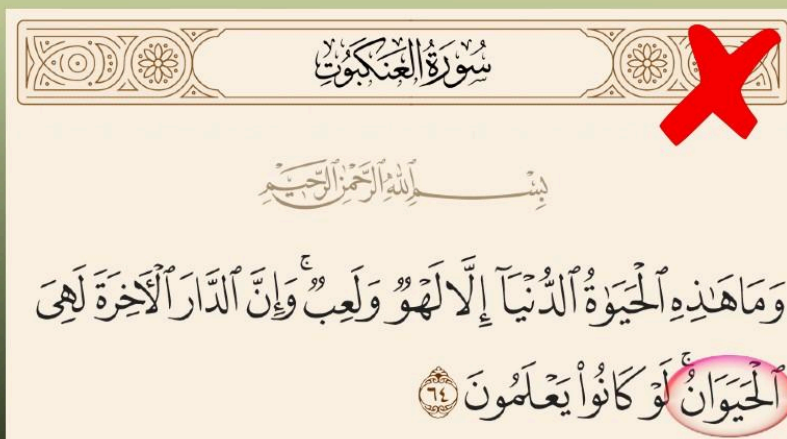 سُورَةُ الْعَنكَبُوتِ
بِسْمِ ٱللَّهِ ٱلرَّحْمَٰنِ ٱلرَّحِيمِ
وَمَا هَٰذِهِ ٱلْحَيَوٰةُ ٱلدُّنْيَآ إِلَّا لَهْوٌ وَلَعِبٌ ۚ وَإِنَّ ٱلدَّارَ ٱلْأَخِرَةَ لَهِىَ
ٱلْحَيَوَانُ ۚ لَوْ كَانُوا۟ يَعْلَمُونَ ٦٤